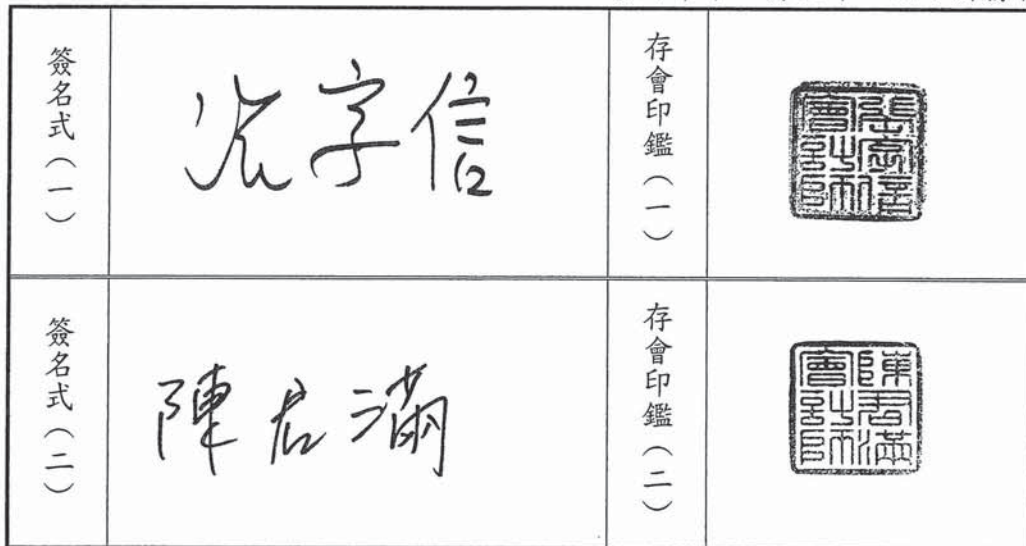 簽名式（一）
字信
存會印鑑（一）
會計師
簽名式（二）
陳君滿
存會印鑑（二）
陳君滿
會計師